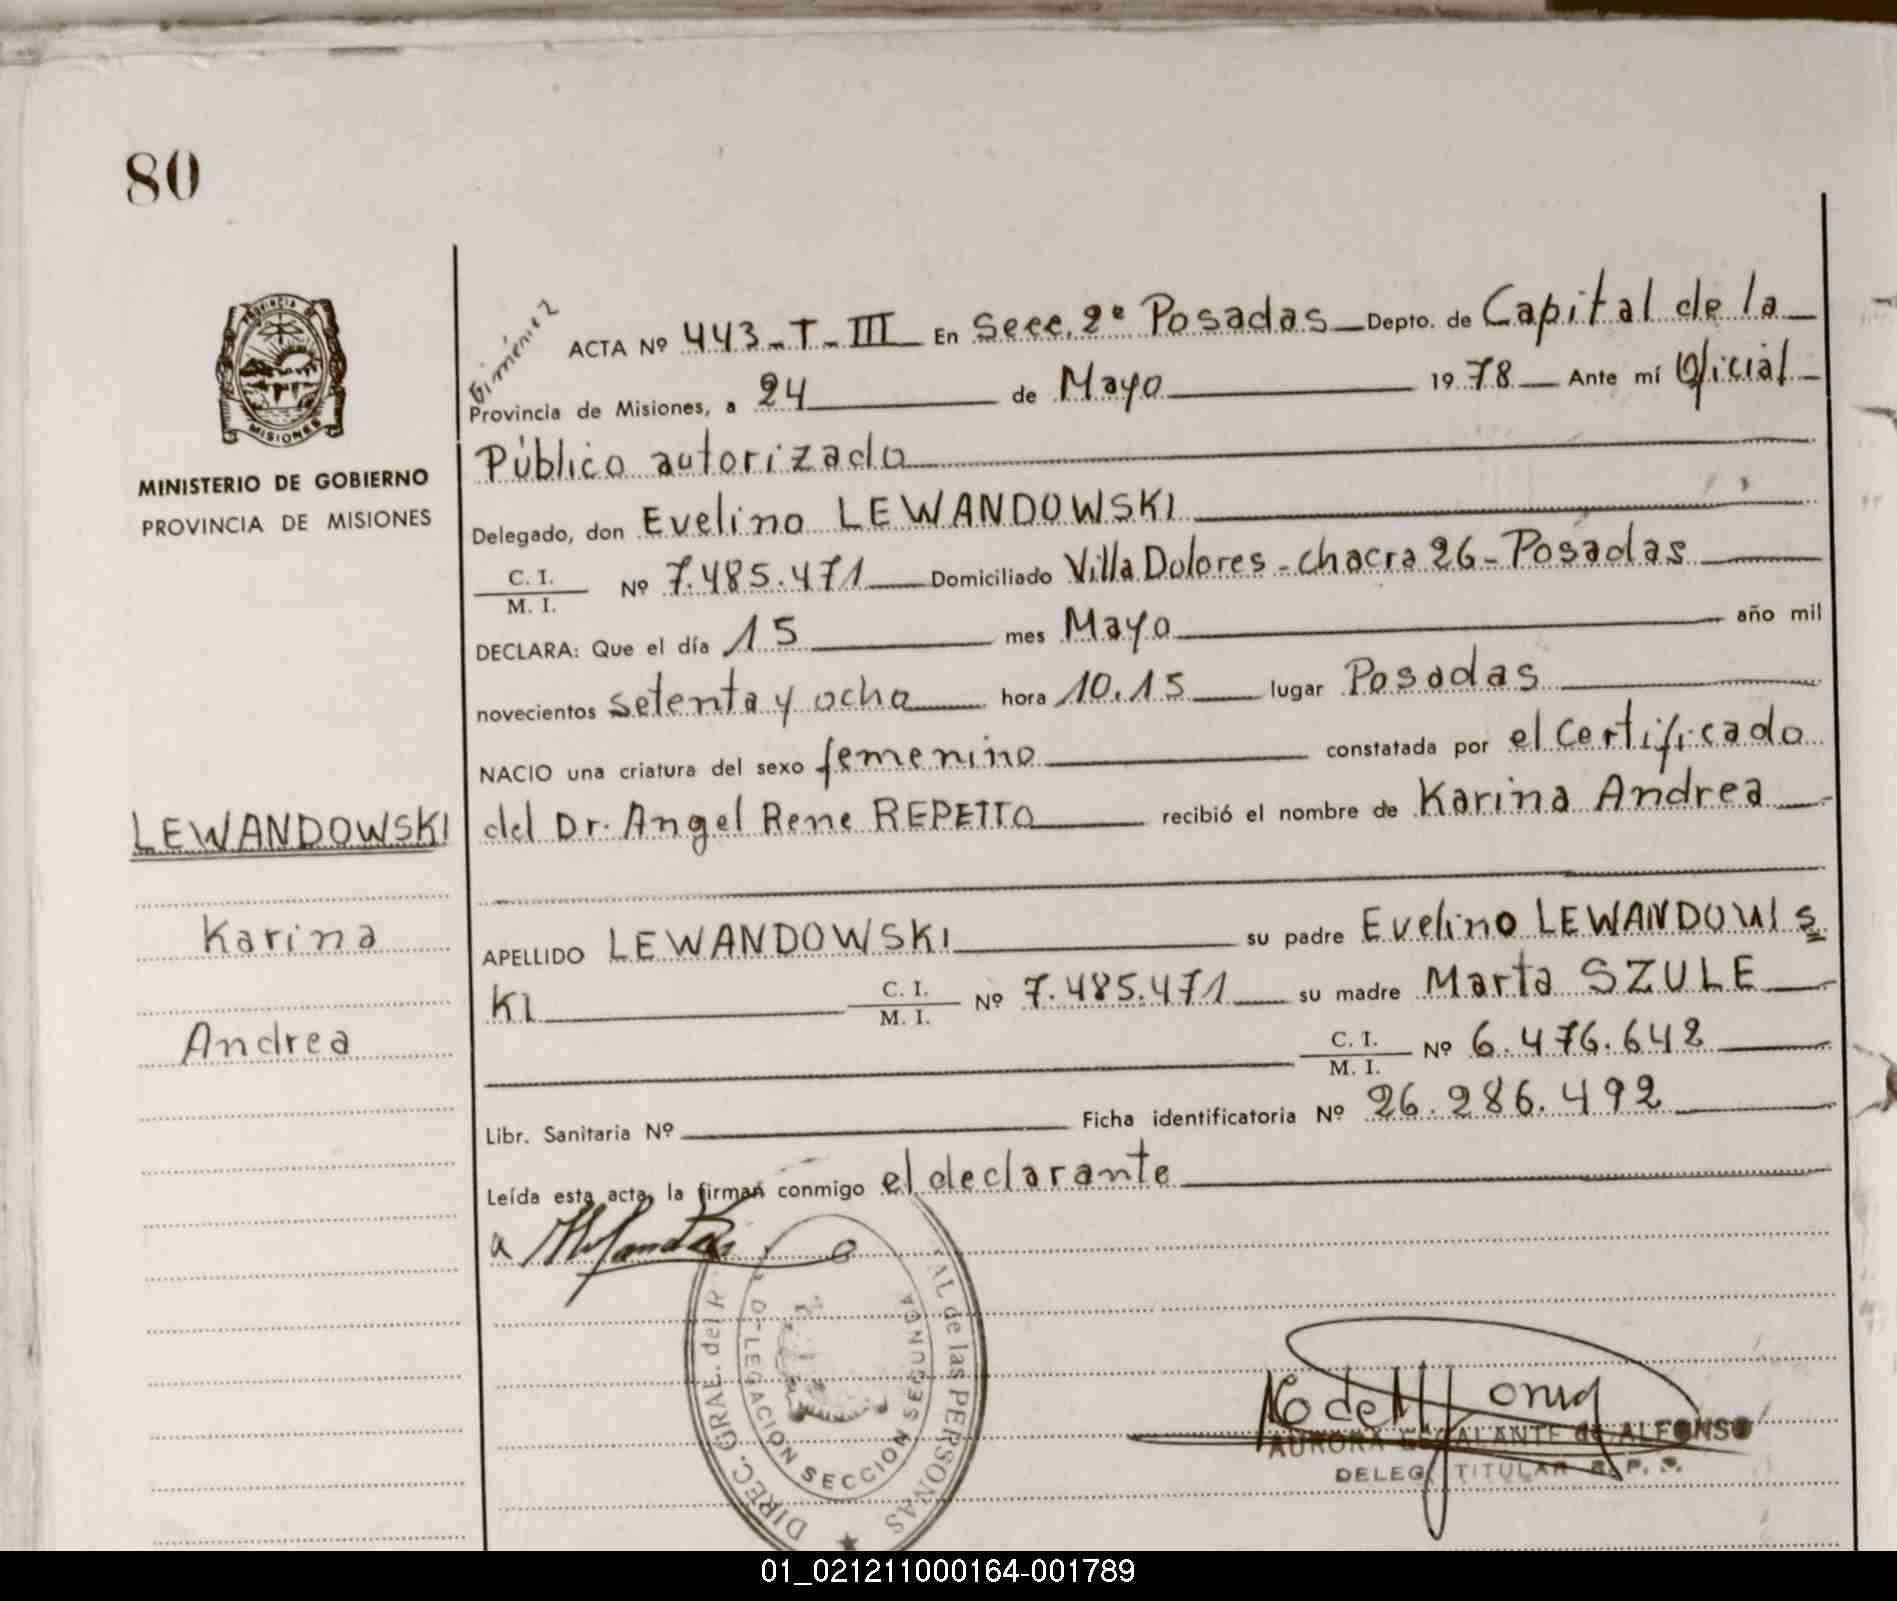 80
PROVINCIA DE
MISIONES
MINISTERIO DE GOBIERNO
PROVINCIA DE MISIONES
LEWANDOWSKI
Karina
Andrea
Giménez
ACTA Nº 443-T-III En Secc. 2ª Posadas Depto. de Capital de la
Provincia de Misiones, a 24 de Mayo 1978 Ante mí Oficial
Público autorizado
Delegado, don Evelino LEWANDOWSKI
C. I.
M. I. Nº 7.485.471 Domiciliado Villa Dolores - chacra 26 - Posadas
DECLARA: Que el día 15 mes Mayo año mil
novecientos setenta y ocho hora 10.15 lugar Posadas
NACIO una criatura del sexo femenino constatada por el Certificado
del Dr. Angel Rene REPETTO recibió el nombre de Karina Andrea
APELLIDO LEWANDOWSKI su padre Evelino LEWANDOWS
KI C. I. M. I. Nº 7.485.471 su madre Marta SZULE
C. I. M. I. Nº 6.476.642
Libr. Sanitaria Nº Ficha identificatoria Nº 26.286.492
Leída esta acta, la firman conmigo el declarante
DIREC. GRAL. del R AL de las PERSONAS
DELEGACION SECCION SEGUNDA
AURORA de ALFONSO
DELEG. TITULAR R. P. P.
01_021211000164-001789